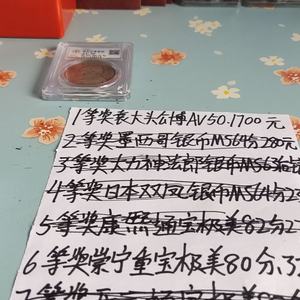 1等奖袁大头公博AU50.1700元
2等奖墨西哥银币MS64分280元
3等奖大力神法郎银币MS63
4等奖日本双凤银币MS64分2
5等奖康熙通宝极美82分2
6等奖崇宁重宝极美80分、3
7等奖